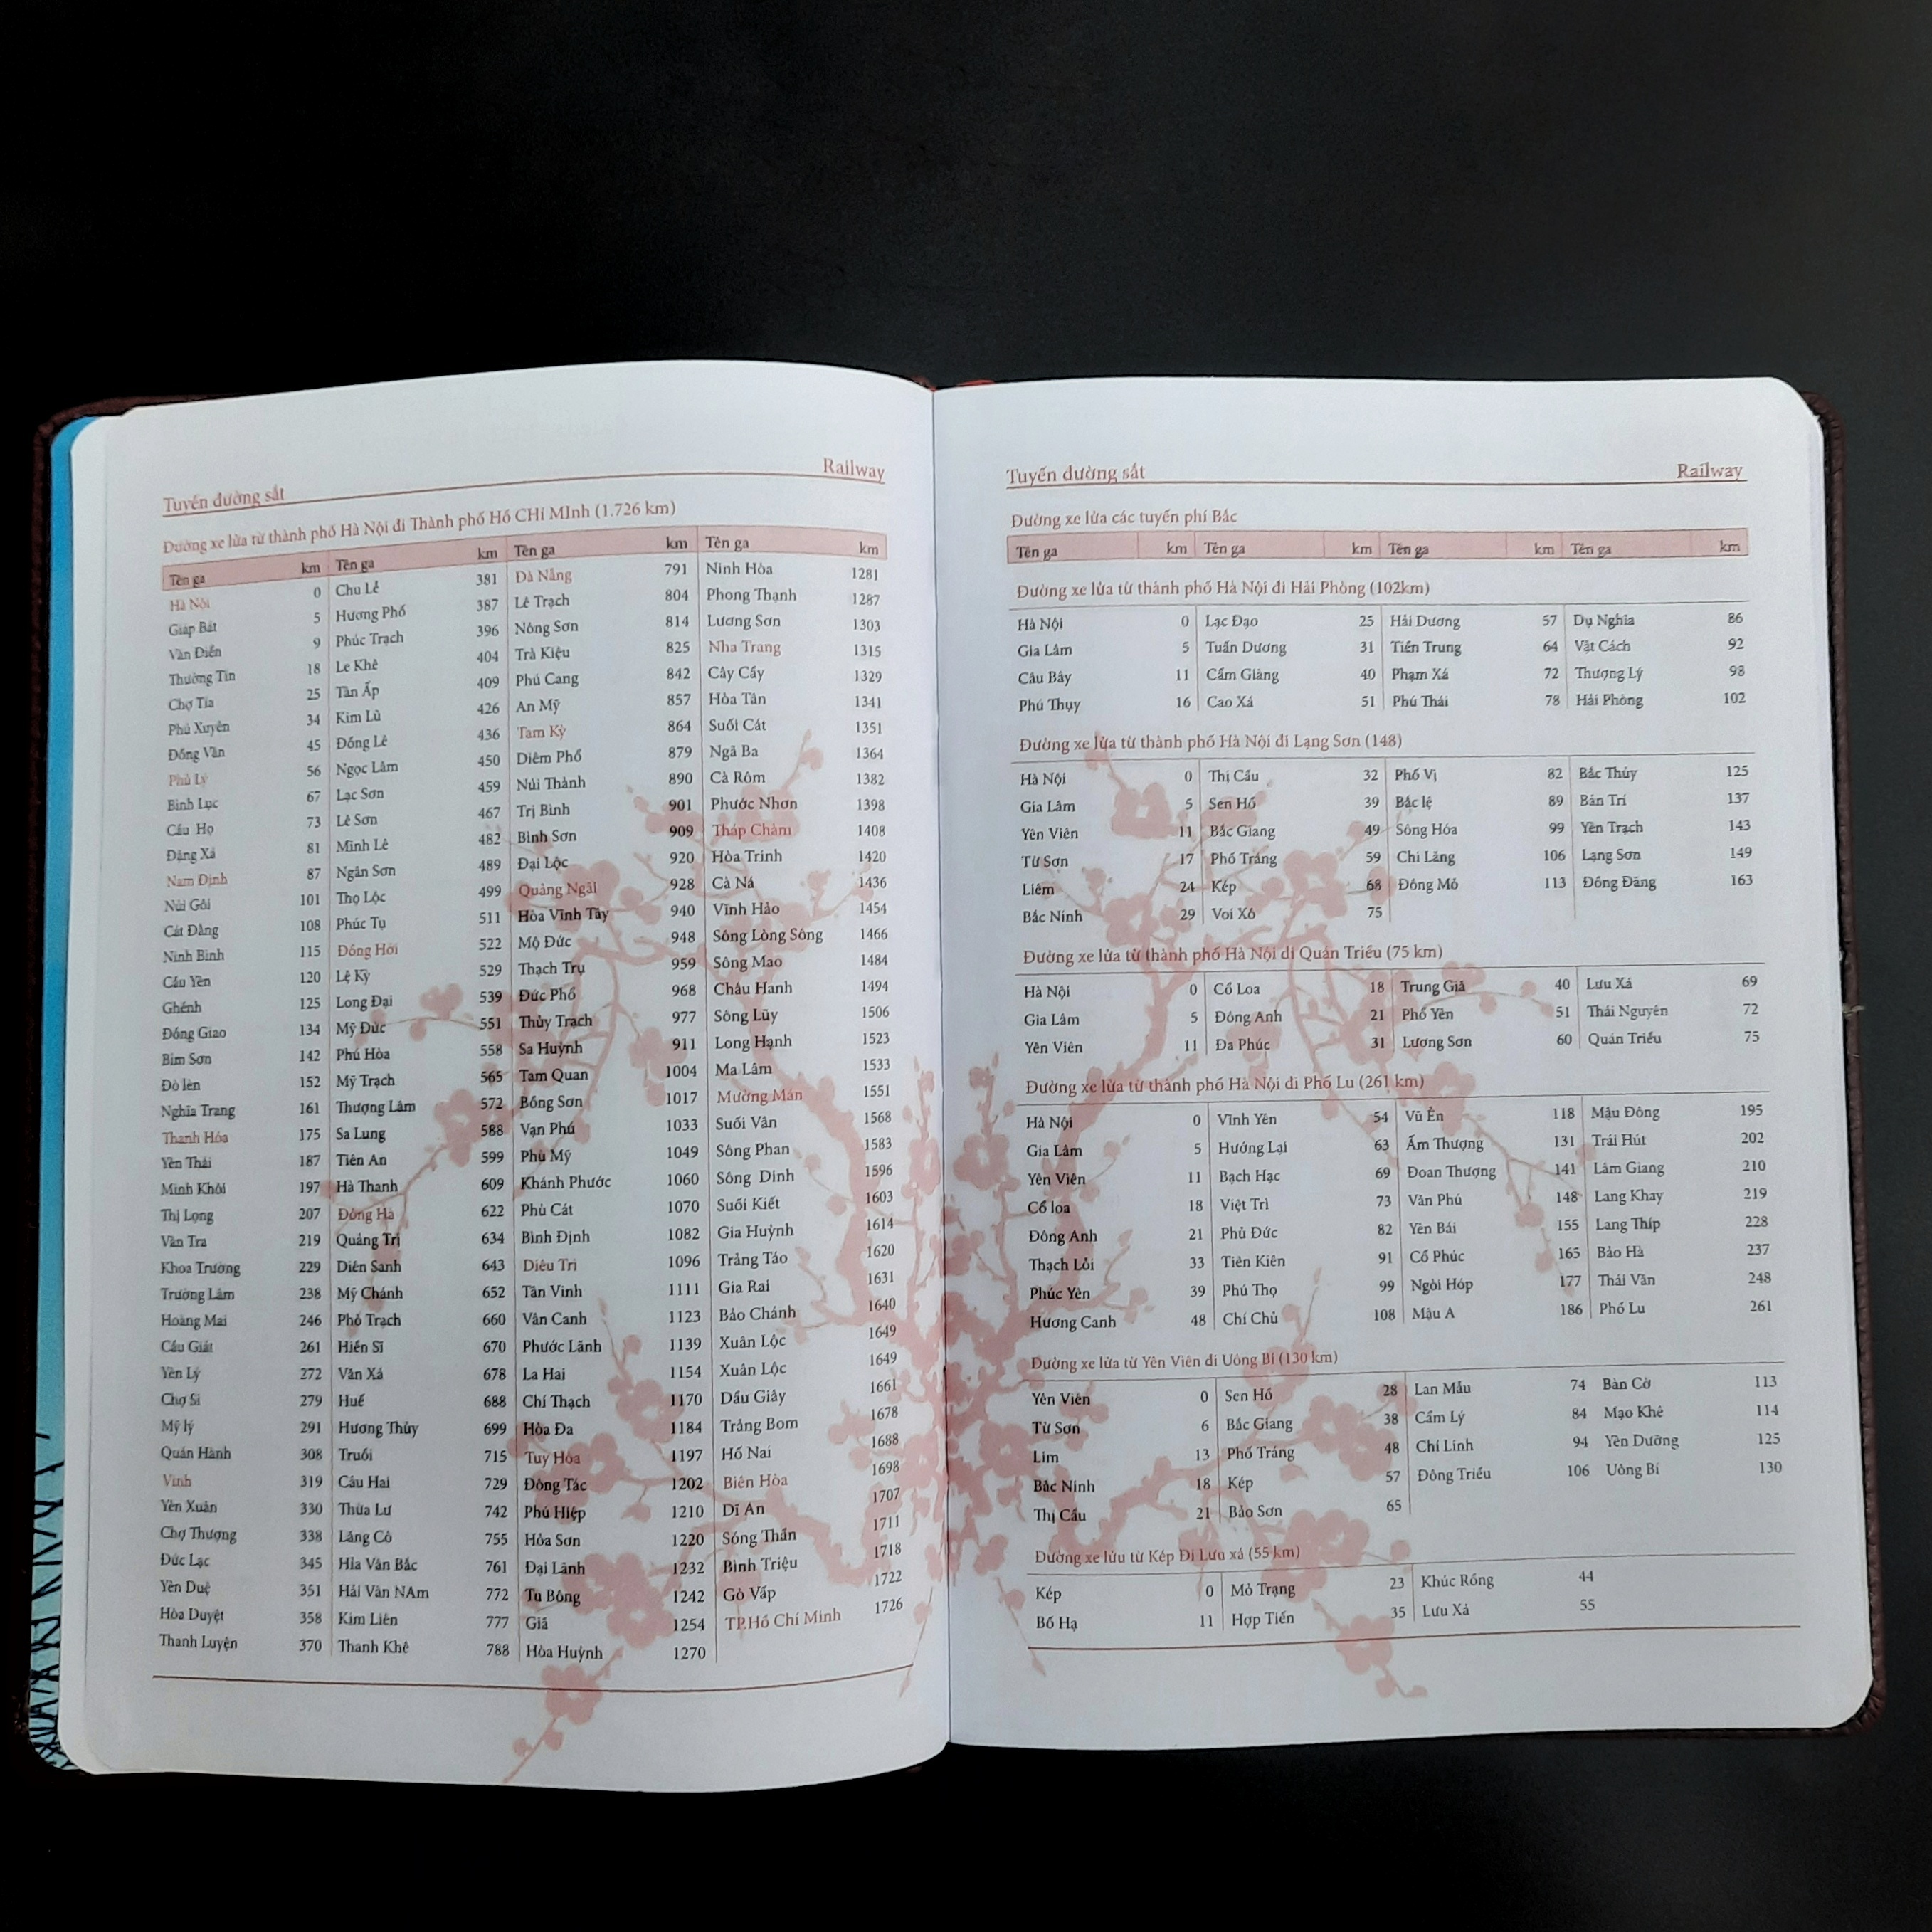 Tuyến đường sắt Railway
Đường xe lửa từ thành phố Hà Nội đi Thành phố Hồ CHí MInh (1.726 km)
Tên ga km Tên ga km Tên ga km Tên ga km
Hà Nội 0 Chu Lễ 381 Đà Nẵng 791 Ninh Hòa 1281
Giáp Bát 5 Hương Phố 387 Lê Trạch 804 Phong Thạnh 1287
Văn Điển 9 Phúc Trạch 396 Nông Sơn 814 Lương Sơn 1303
Thường Tín 18 Le Khê 404 Trà Kiệu 825 Nha Trang 1315
Chợ Tía 25 Tân Ấp 409 Phú Cang 842 Cây Cầy 1329
Phú Xuyên 34 Kim Lũ 426 An Mỹ 857 Hòa Tân 1341
Đồng Văn 45 Đồng Lê 436 Tam Kỳ 864 Suối Cát 1351
Phủ Lý 56 Ngọc Lâm 450 Diêm Phổ 879 Ngã Ba 1364
Bình Lục 67 Lạc Sơn 459 Núi Thành 890 Cà Rôm 1382
Cầu Họ 73 Lê Sơn 467 Trị Bình 901 Phước Nhơn 1398
Đặng Xá 81 Minh Lệ 482 Bình Sơn 909 Tháp Chàm 1408
Nam Định 87 Ngân Sơn 489 Đại Lộc 920 Hòa Trinh 1420
Núi Gôi 101 Thọ Lộc 499 Quảng Ngãi 928 Cà Ná 1436
Cát Đằng 108 Phúc Tụ 511 Hòa Vĩnh Tây 940 Vĩnh Hảo 1454
Ninh Bình 115 Đồng Hới 522 Mộ Đức 948 Sông Lòng Sông 1466
Cầu Yên 120 Lệ Kỳ 529 Thạch Trụ 959 Sông Mao 1484
Ghềnh 125 Long Đại 539 Đức Phổ 968 Châu Hanh 1494
Đồng Giao 134 Mỹ Đức 551 Thủy Trạch 977 Sông Lũy 1506
Bỉm Sơn 142 Phú Hòa 558 Sa Huỳnh 911 Long Hạnh 1523
Đò lèn 152 Mỹ Trạch 565 Tam Quan 1004 Ma Lâm 1533
Nghĩa Trang 161 Thượng Lâm 572 Bồng Sơn 1017 Mường Mán 1551
Thanh Hóa 175 Sa Lung 588 Vạn Phú 1033 Suối Vân 1568
Yên Thái 187 Tiên An 599 Phù Mỹ 1049 Sông Phan 1583
Minh Khôi 197 Hà Thanh 609 Khánh Phước 1060 Sông Dinh 1596
Thị Long 207 Đông Hà 622 Phù Cát 1070 Suối Kiết 1603
Văn Tra 219 Quảng Trị 634 Bình Định 1082 Gia Huỳnh 1614
Khoa Trường 229 Diên Sanh 643 Diêu Trì 1096 Trảng Táo 1620
Trường Lâm 238 Mỹ Chánh 652 Tân Vinh 1111 Gia Rai 1631
Hoàng Mai 246 Phò Trạch 660 Vân Canh 1123 Bảo Chánh 1640
Cầu Giát 261 Hiền Sĩ 670 Phước Lãnh 1139 Xuân Lộc 1649
Yên Lý 272 Văn Xá 678 La Hai 1154 Xuân Lộc 1649
Chợ Si 279 Huế 688 Chí Thạch 1170 Dầu Giây 1661
Mỹ lý 291 Hương Thủy 699 Hòa Đa 1184 Trảng Bom 1678
Quán Hành 308 Truồi 715 Tuy Hòa 1197 Hố Nai 1688
Vinh 319 Cầu Hai 729 Đông Tác 1202 Biên Hòa 1698
Yên Xuân 330 Thừa Lư 742 Phú Hiệp 1210 Dĩ An 1707
Chợ Thượng 338 Lăng Cô 755 Hòa Sơn 1220 Sóng Thần 1711
Đức Lạc 345 Hỉa Vân Bắc 761 Đại Lãnh 1232 Bình Triệu 1718
Yên Duệ 351 Hải Vân NAm 772 Tu Bông 1242 Gò Vấp 1722
Hòa Duyệt 358 Kim Liên 777 Giã 1254 TP.Hồ Chí Minh 1726
Thanh Luyện 370 Thanh Khê 788 Hòa Huỳnh 1270
Tuyến đường sắt Railway
Đường xe lửa các tuyến phí Bắc
Tên ga km Tên ga km Tên ga km Tên ga km
Đường xe lửa từ thành phố Hà Nội đi Hải Phòng (102km)
Hà Nội 0 Lạc Đạo 25 Hải Dương 57 Dụ Nghĩa 86
Gia Lâm 5 Tuấn Dương 31 Tiền Trung 64 Vật Cách 92
Cầu Bây 11 Cẩm Giàng 40 Phạm Xá 72 Thượng Lý 98
Phú Thụy 16 Cao Xá 51 Phú Thái 78 Hải Phòng 102
Đường xe lửa từ thành phố Hà Nội đi Lạng Sơn (148)
Hà Nội 0 Thị Cầu 32 Phố Vị 82 Bắc Thủy 125
Gia Lâm 5 Sen Hồ 39 Bắc lệ 89 Bản Trí 137
Yên Viên 11 Bắc Giang 49 Sông Hóa 99 Yên Trạch 143
Từ Sơn 17 Phố Tráng 59 Chi Lăng 106 Lạng Sơn 149
Liêm 24 Kép 68 Đông Mỏ 113 Đồng Đăng 163
Bắc Ninh 29 Voi Xô 75
Đường xe lửa từ thành phố Hà Nội di Quán Triều (75 km)
Hà Nội 0 Cổ Loa 18 Trung Giã 40 Lưu Xá 69
Gia Lâm 5 Đông Anh 21 Phổ Yên 51 Thái Nguyên 72
Yên Viên 11 Đa Phúc 31 Lương Sơn 60 Quán Triều 75
Đường xe lửa từ thành phố Hà Nội đi Phố Lu (261 km)
Hà Nội 0 Vĩnh Yên 54 Vũ Ẻn 118 Mậu Đông 195
Gia Lâm 5 Hướng Lại 63 Ấm Thượng 131 Trái Hút 202
Yên Viên 11 Bạch Hạc 69 Đoan Thượng 141 Lâm Giang 210
Cổ loa 18 Việt Trì 73 Văn Phú 148 Lang Khay 219
Đông Anh 21 Phủ Đức 82 Yên Bái 155 Lang Thíp 228
Thạch Lỗi 33 Tiên Kiên 91 Cổ Phúc 165 Bảo Hà 237
Phúc Yên 39 Phú Thọ 99 Ngòi Hóp 177 Thái Văn 248
Hương Canh 48 Chí Chủ 108 Mậu A 186 Phố Lu 261
Đường xe lửa từ Yên Viên đi Uông Bí (130 km)
Yên Viên 0 Sen Hồ 28 Lan Mẫu 74 Bàn Cờ 113
Từ Sơn 6 Bắc Giang 38 Cẩm Lý 84 Mạo Khê 114
Lim 13 Phố Tráng 48 Chí Linh 94 Yên Dưỡng 125
Bắc Ninh 18 Kép 57 Đông Triều 106 Uông Bí 130
Thị Cầu 21 Bảo Sơn 65
Đường xe lửu từ Kép Đi Lưu xá (55 km)
Kép 0 Mỏ Trạng 23 Khúc Rồng 44
Bố Hạ 11 Hợp Tiến 35 Lưu Xá 55